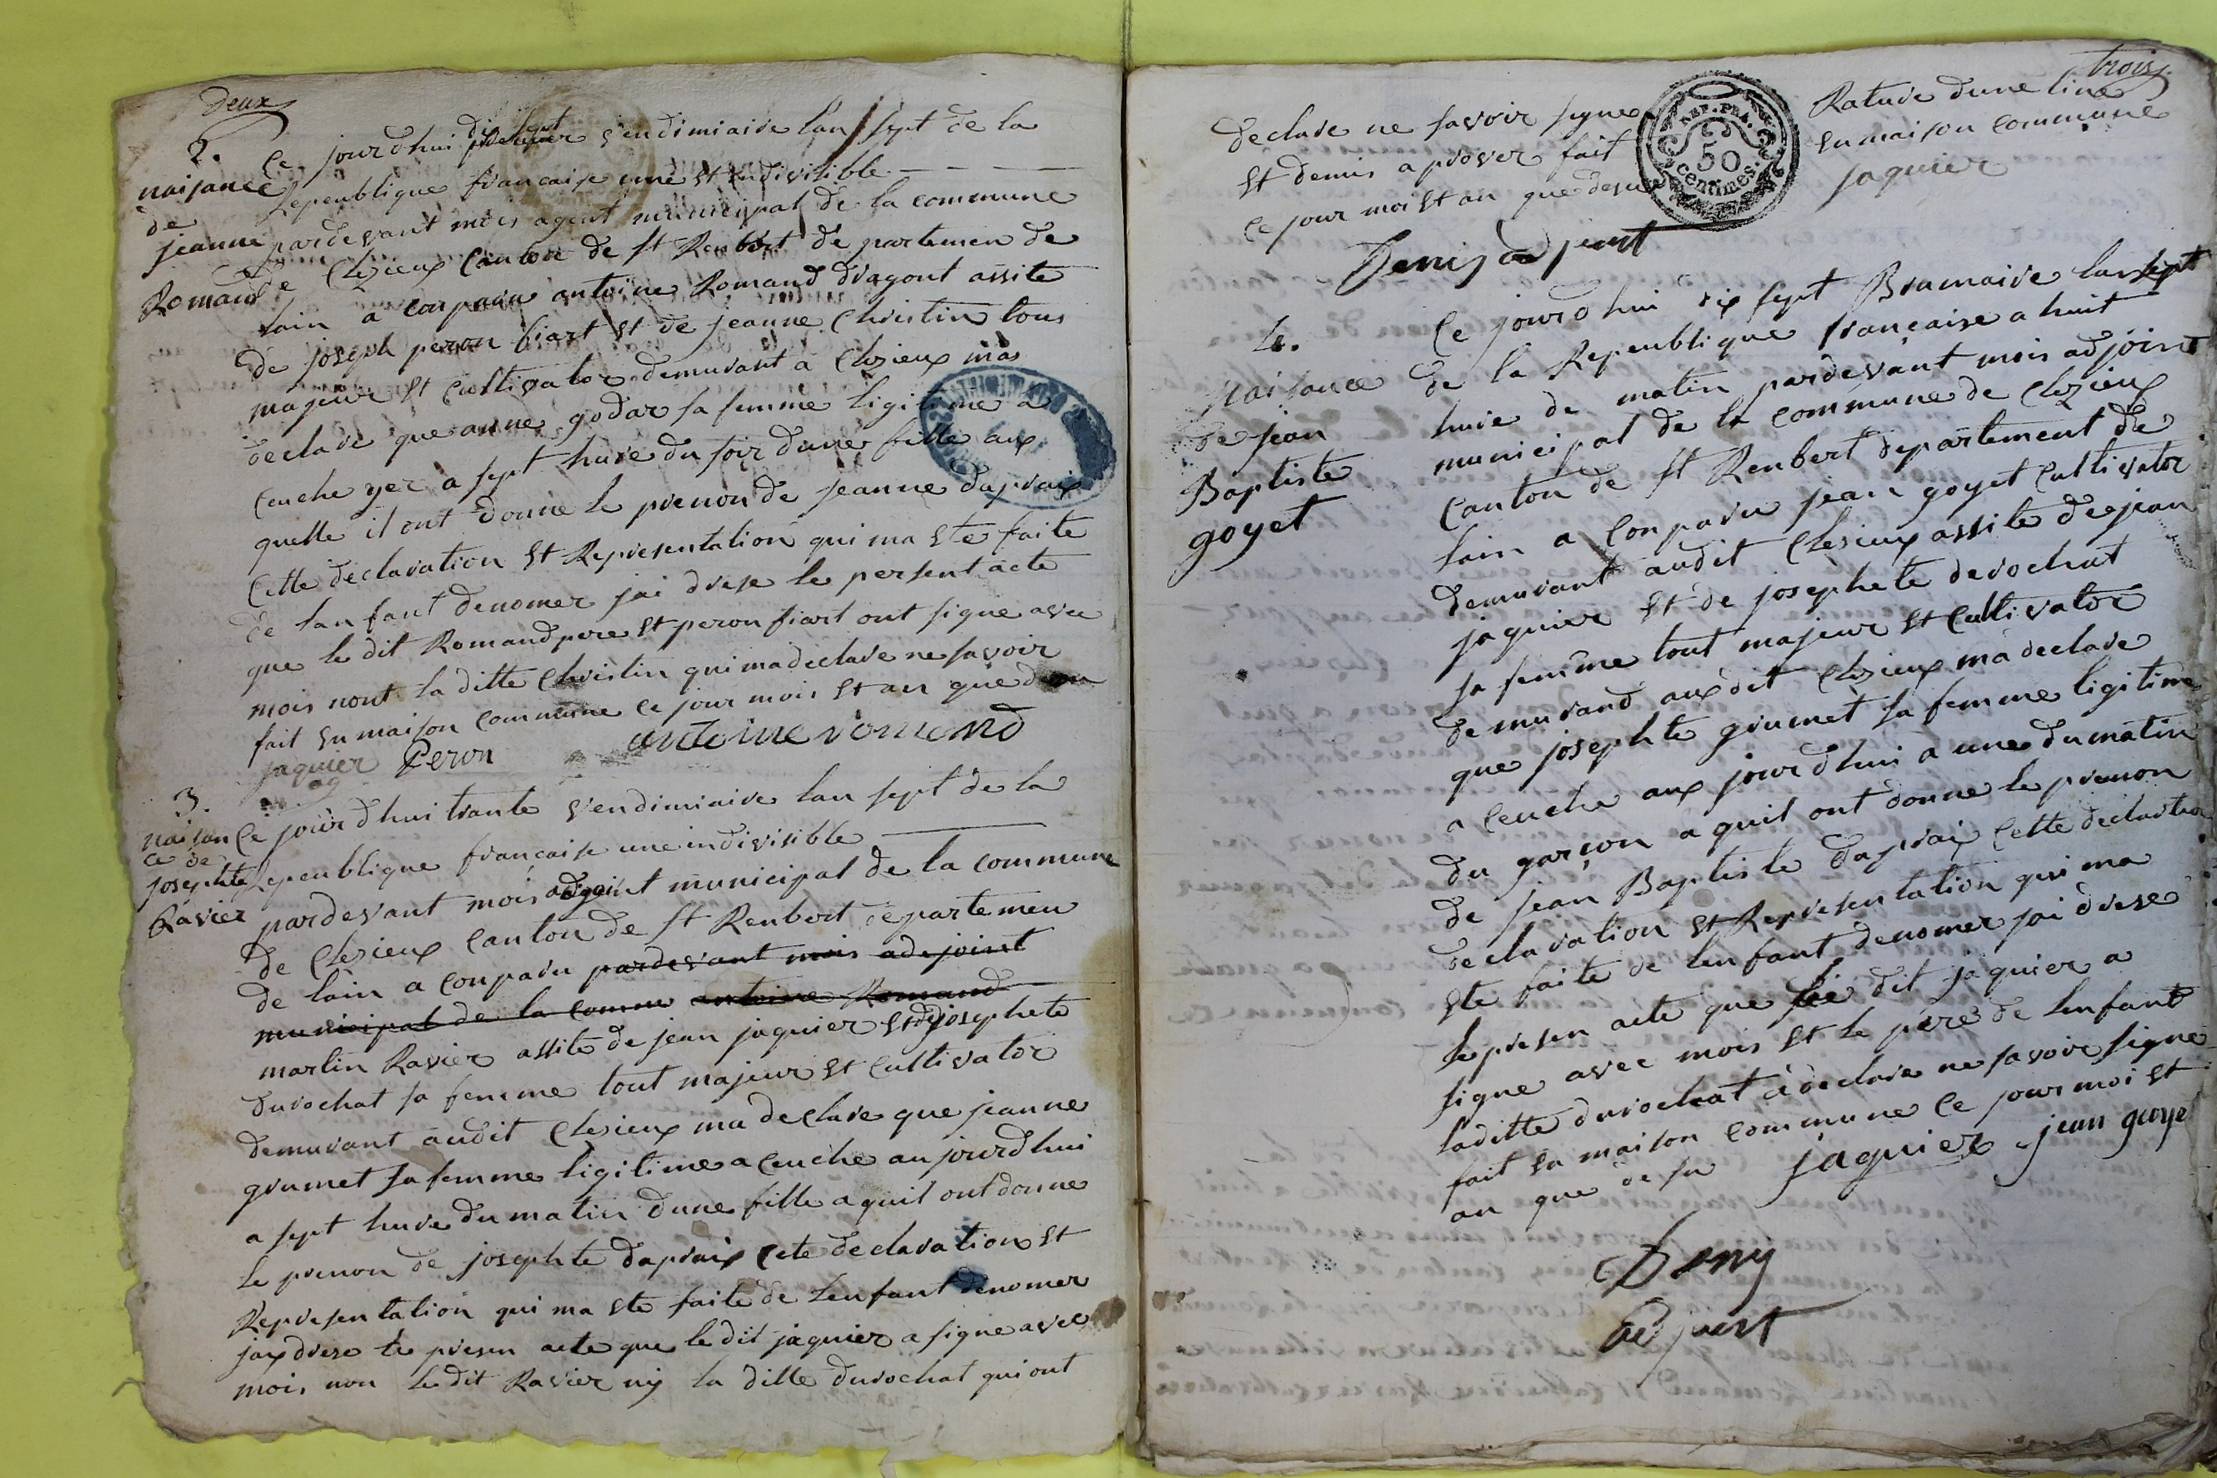 Deux
2.
naisance
de
jeanne
Romand
Ce jourdhui dix sept vendimiaire lan sept de la
Repeublique francaise une et indivisible
pardevant mois agent municipal de la commune
de Clezieux Canton de St Renbert departemen de
lain a conparu antoine Romand dragont assite
de joseph peron fiart et de jeanne Christin tous
majeur et Cultivator demurant a Clezieux mas
declare que anne godar sa femme ligitime a
Ceuche yer a sept hure du soir dune fille aux
quelle il ont donne le prenon de jeanne daprais
Cette declaration et Representation qui ma ete faite
de lanfant denomer jai drese le persent acte
que le dit Romand pere et peron fiart ont signe avec
mois nont la ditte Christin qui ma declare ne savoir
fait en maison commune ce jour mois et an que
jaquier Peron antoine romend
3.
naisan
ce de
josephte
Ravier
Ce jourdhui trante vendimiaire lan sept de la
Repeublique francaise une indivisible
pardevant mois adjoint municipal de la commune
de Clezieux Canton de St Renbert departemeu
de lain a conparu pardevant mois adejoint
municipal de la comme antoine Romand
martin Ravier assite de jean jaquier et de josephete
durochat sa femme tout majeur et Cultivator
demurant audit Clezieux ma declare que jeanne
grumet sa femme ligitime a Ceuche aujourdhui
a sept hure du matin dune fille a quil ont donne
le prenon de josephte daprais Cete declaration et
Representation qui ma ete faite de lenfant denomer
jay drese le presen acte que le dit jaquier a signe avec
mois non le dit Ravier ny la ditte durochat qui ont
trois
declare ne savoir signe
et demis aprover fait
ce jour mois et an que desu
REP. FRA.
50
centimes
Rature dune line
en maison commune
jaquier
Deny adjoint
4.
Naisance
de jean
Baptiste
goyet
Ce jourdhui dix sept Brumaire lan sept
de la Repeublique francaise a huit
hure de matin pardevant mois adjoint
municipal de la commune de Clezieux
Canton de St Renbert departement de
lain a Conparu jean goyet Cultivator
demurant audit Clesieux assite de jean
jaquier et de josephete derochat
sa femme tout majeur et Cultivator
demurand auxdit Clezieux ma declare
que josephte grumet sa femme ligitime
a Ceuche aux jourdhui a une du matin
du garcon a quil ont donne le prenon
de jean Baptiste daprais Cette declartion
declaration et Representation qui ma
ete faite de lenfant denomer jai drese
le presen acte que le dit jaquier a
signe avec mois et le père de lenfant
laditte durochat a declare ne savoir signe
fait en maison commune Ce jour moi et
an que de su jaquier jean goye
Deny
adjoint